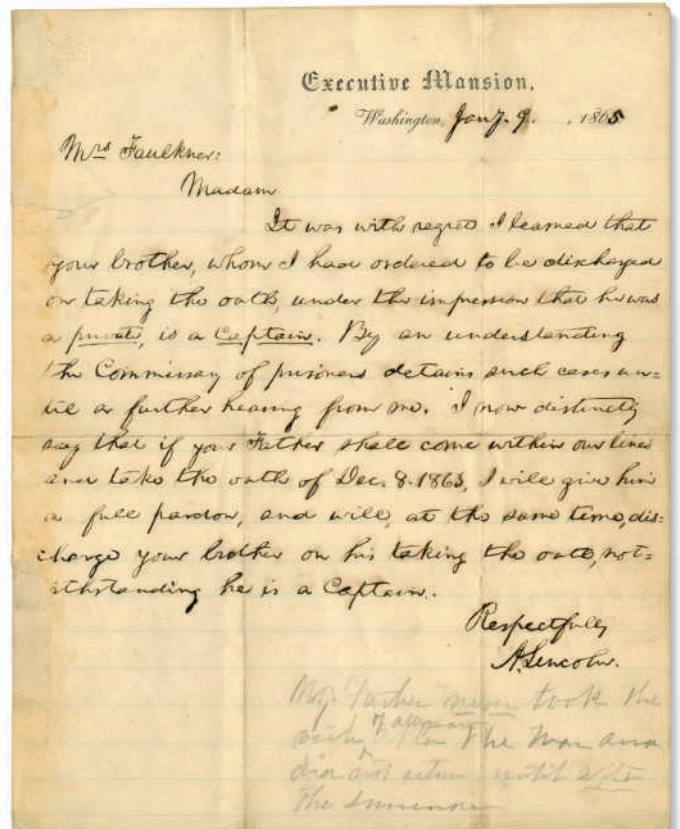 Executive Mansion,
Washington, Jany. 9. , 1865
Mrs Faulkner:
Madam
It was with regret I learned that
your brother, whom I had ordered to be discharged
on taking the oath, under the impression that he was
a private, is a Captain. By an understanding
the Commissary of prisoners detains such cases un=
til a further hearing from me. I now distinctly
say that if your Father shall come within our lines
and take the oath of Dec. 8. 1863, I will give him
a full pardon, and will, at the same time, dis=
charge your brother on his taking the oath, not=
ithstanding he is a Captain.
Respectfully
A. Lincoln.
My Father never took the
oath of after the War and
did not return until after
the surrender